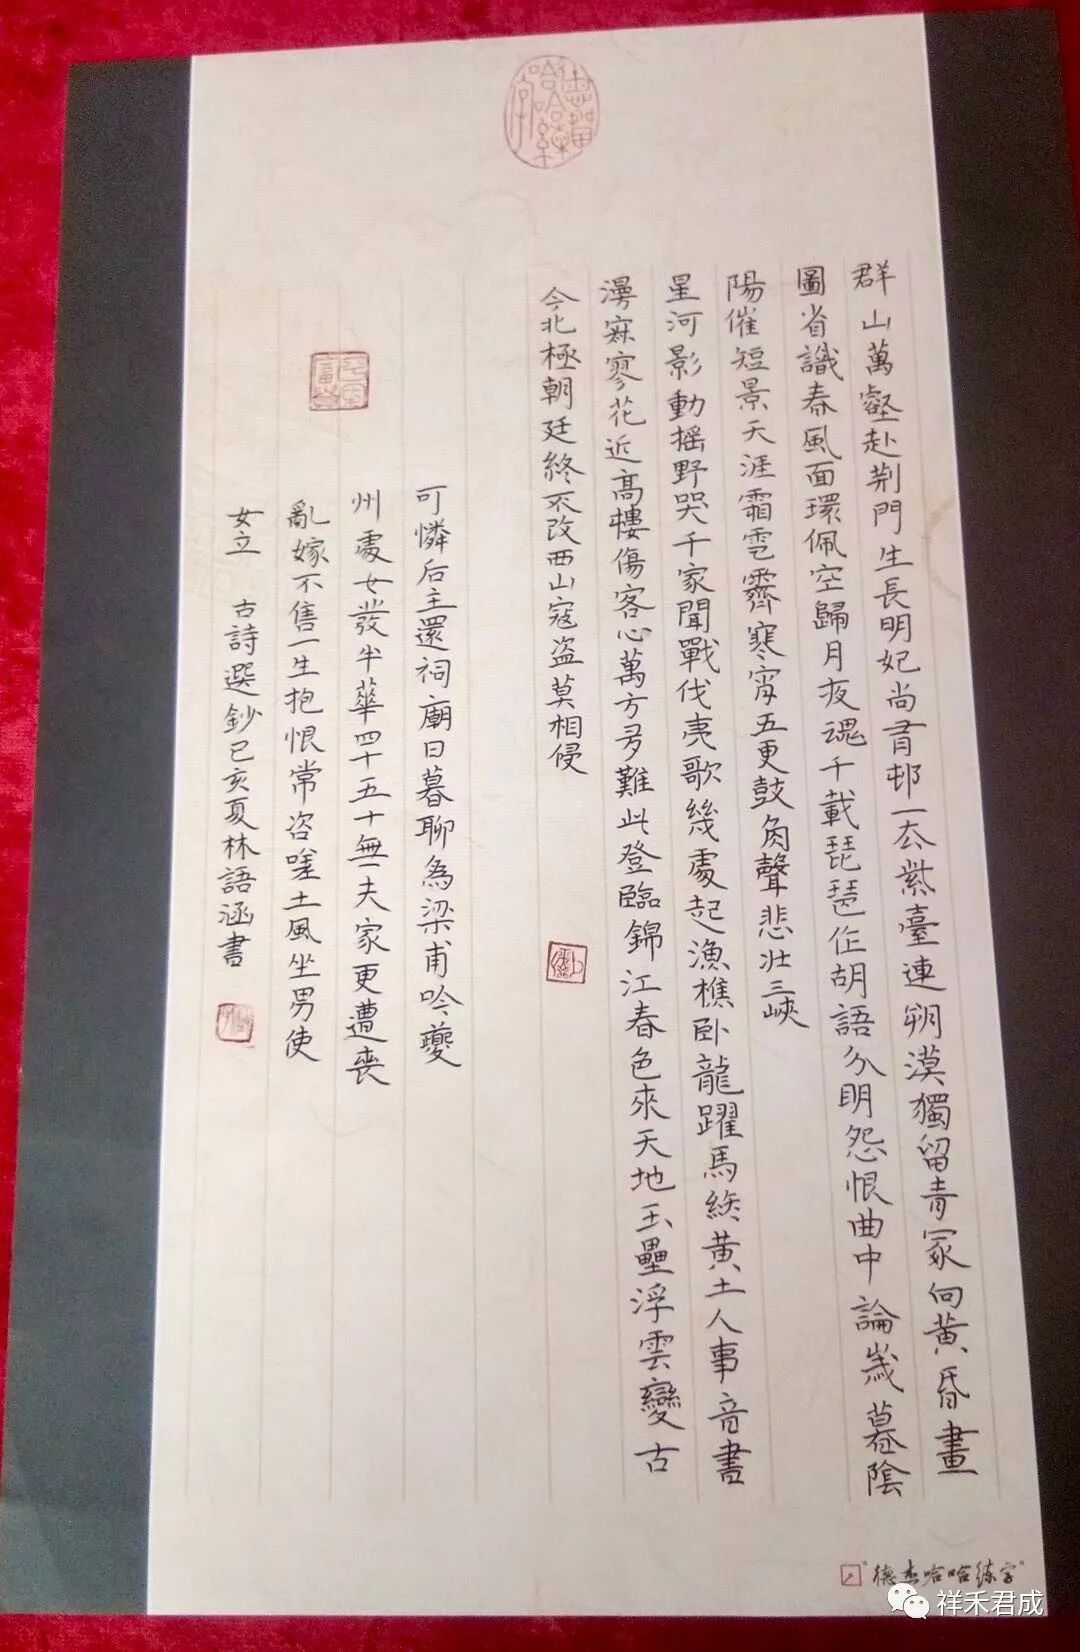 群山萬壑赴荆門生長明妃尚有邨一去紫臺連朔漠獨留青冢向黃昏畫
圖省識春風面環佩空歸月夜魂千載琵琶作胡語分明怨恨曲中論歲暮陰
陽催短景天涯霜雪霽寒宵五更鼓角聲悲壯三峽
星河影動搖野哭千家聞戰伐夷歌幾處起漁樵卧龍躍馬終黃土人事音書
漫寂寥花近高樓傷客心萬方多難此登臨錦江春色來天地玉壘浮雲變古
今北極朝廷終不改西山寇盜莫相侵
可憐后主還祠廟日暮聊為梁甫吟夔
州處女髮半華四十五十無夫家更遭喪
亂嫁不售一生抱恨常咨嗟土風坐男使
女立 古詩選鈔己亥夏林語涵書
德杰哈哈練字
德杰哈哈练字
祥禾君成